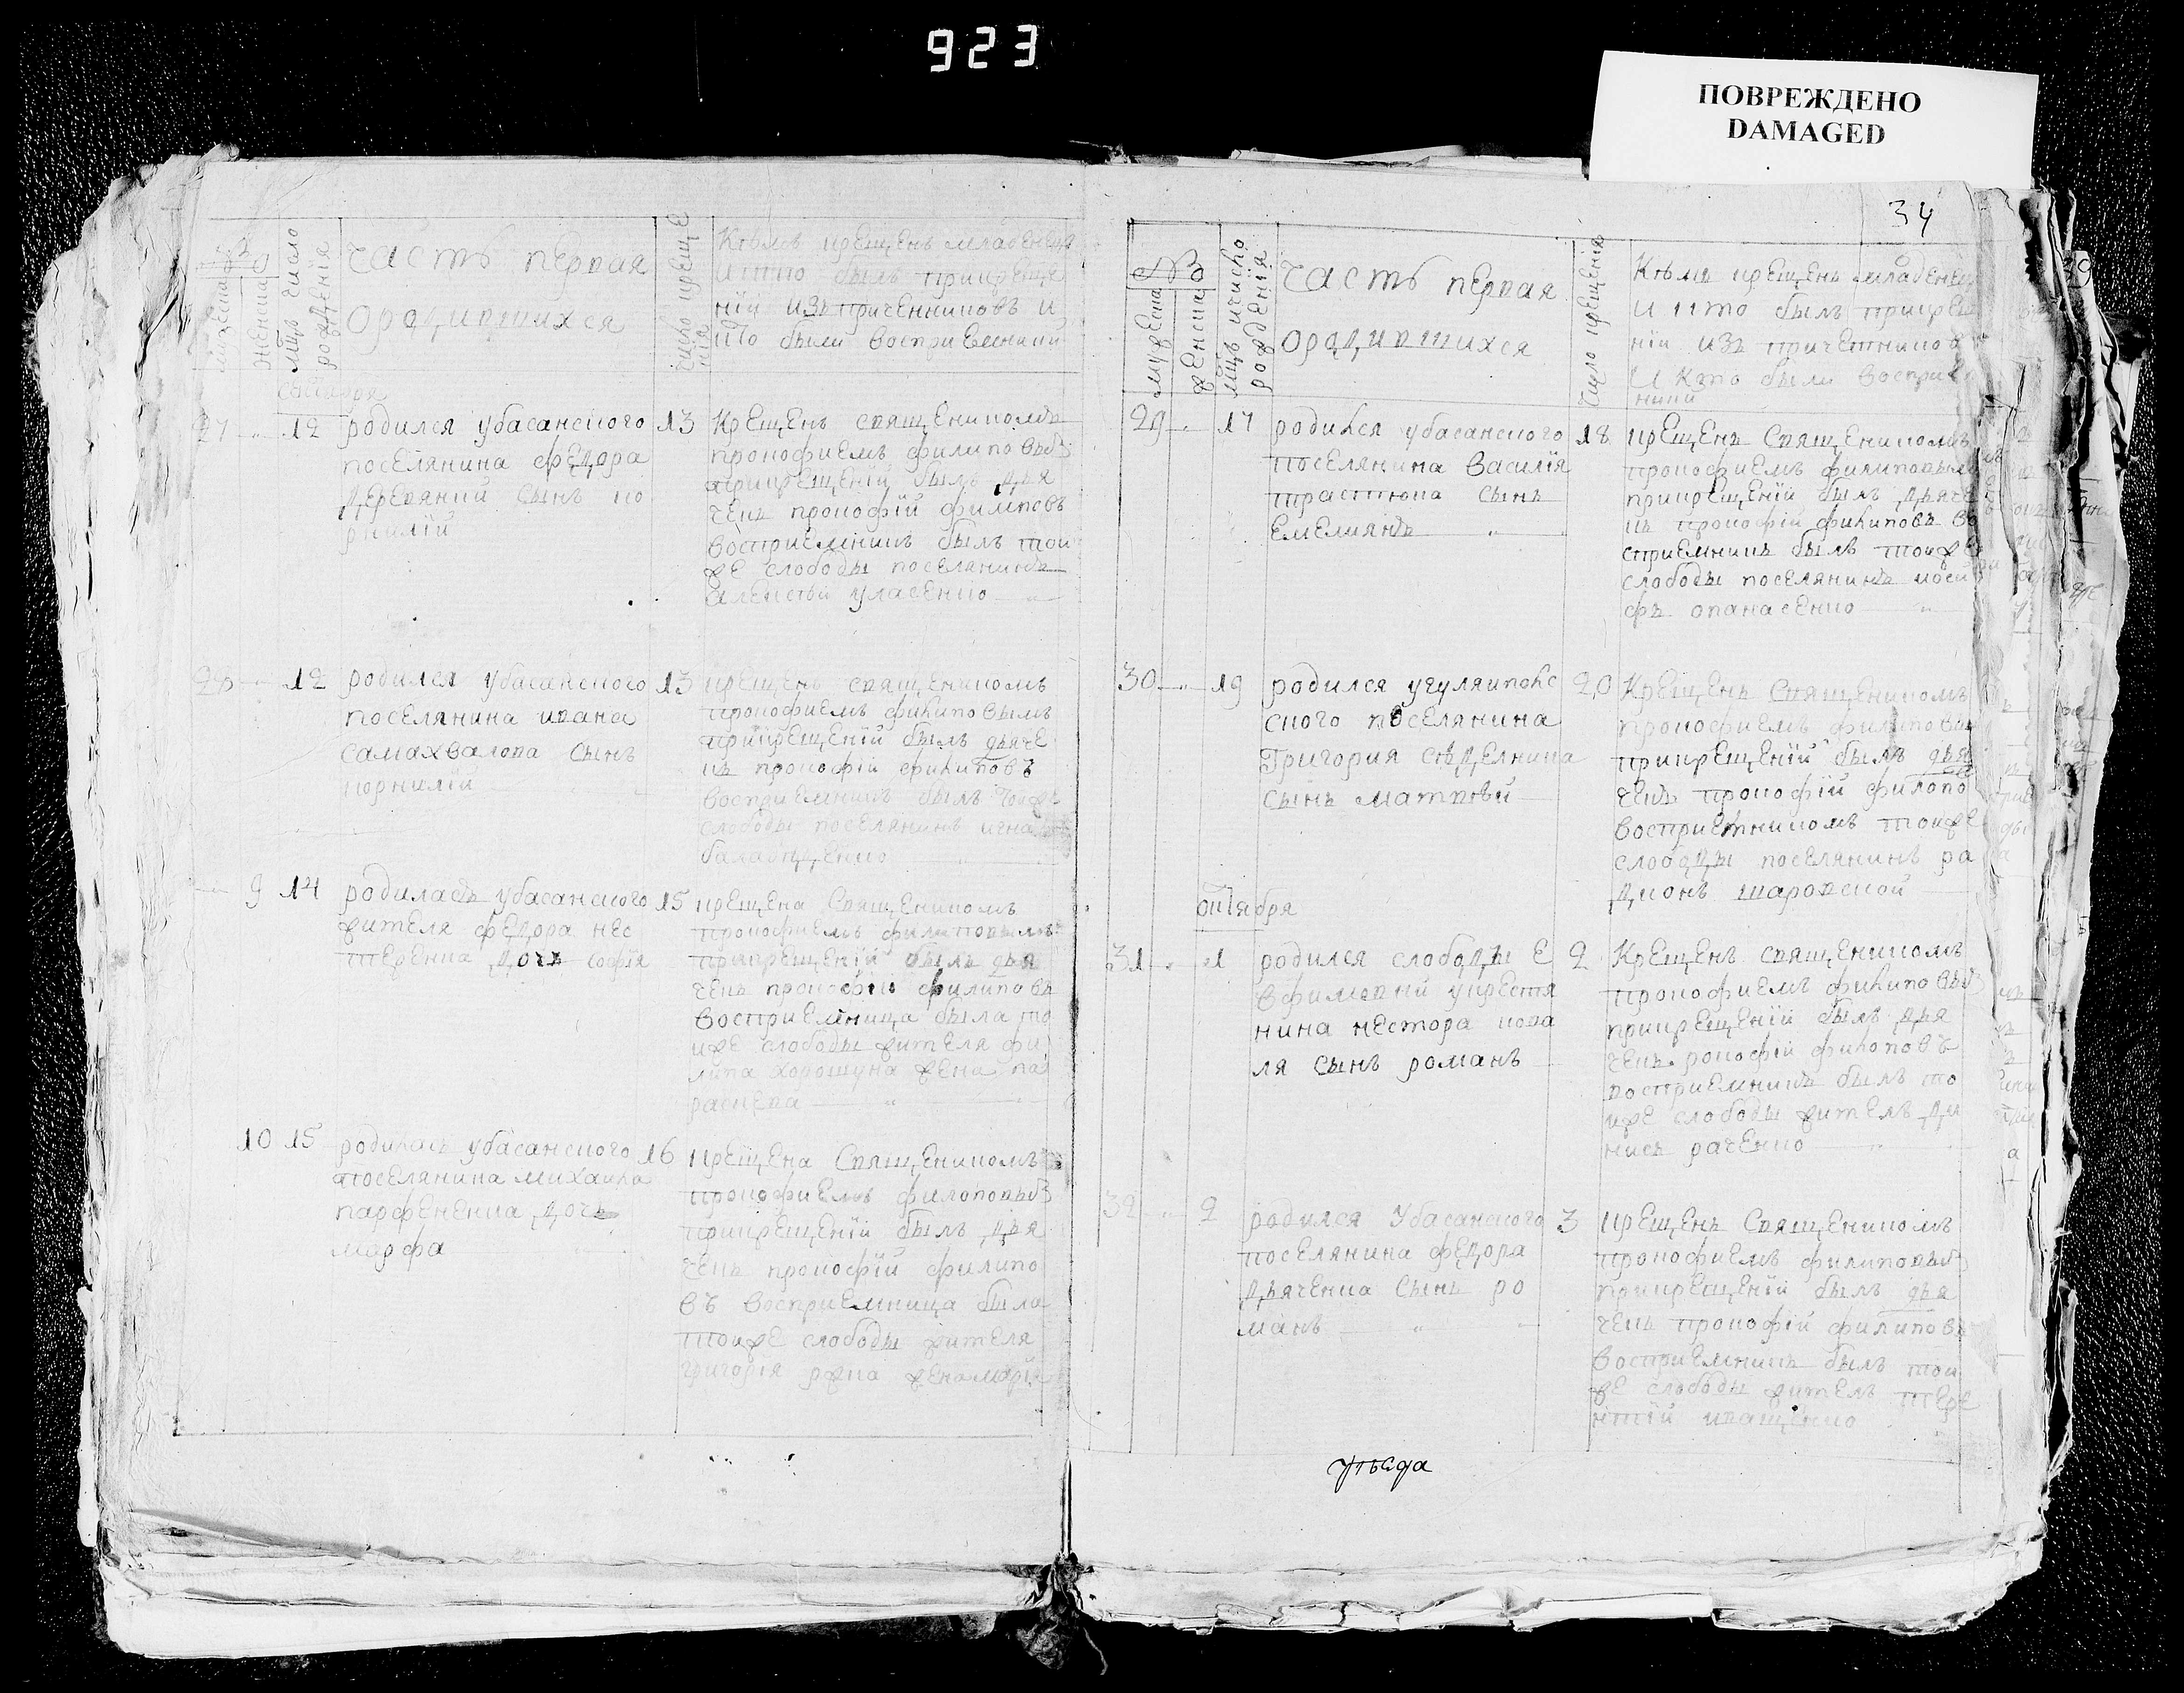 923
ПОВРЕЖДЕНО
DAMAGED
№
мужена
женска
мцъ число рожденїя
часть первая
ородившихся
число креще
нїя
Кѣмъ крещенъ младенецъ
и кто былъ прикреще
нїи изъ причетниковъ и
кто были восприемники
сентября
27 12
родился убасанского
поселянина федора
деревянки сынъ ко
рнилїй
13
Крещенъ священникомъ
прокофиемъ филиповым
прикрещенїй былъ дья
чекъ прокофїй филиповъ
восприемникъ былъ той
же слободы поселянинъ
алексѣй уласенко
28 12
родился убасанского
поселянина ивана
самахвалова сынъ
корнилїй
13
крещенъ священникомъ
прокофиемъ филиповымъ
прикрещенїй былъ дьяче
къ прокофїй филиповъ
восприемникъ былъ тойже
слободы поселянинъ игна
балабаденко
9 14
родилась убасанского
жителя федора нес
теренка дочь софїя
15
крещена священникомъ
прокофиемъ филиповымъ
прикрещенїй былъ дья
чекъ прокофїй филиповъ
восприемница была то
йже слободы жителя фи
липа хорошуна жена па
раскева
10 15
родилась убасанского
поселянина михаила
парфененка дочь
марфа
16
крещена священникомъ
прокофиемъ филоповым
прикрещенїй былъ дья
чекъ прокофїй филипо
въ восприемница была
тойже слободы жителя
григорїя ржка жена марїя
34
№
мужена
женска
мцъ ичисло
рожденїя
часть первая
ородившихся
число крещенїя
Кѣмъ крещенъ младенец
и кто былъ прикреще
нїи изъ причетнико
и кто были восприе
ники
29 17
родился убасанского
поселянина василїя
трастюка сынъ
емелиянъ
18
крещенъ священникомъ
прокофиемъ филиповым
прикрещенїй былъ дьяче
къ прокофїй филиповъ во
сприемникъ былъ тойже
слободы поселянинъ иоси
фъ опанасенко
30 19
родился угуляйполс
ского поселянина
Григория сѣделника
сынъ матвѣй
20
Крещенъ священникомъ
прокофиемъ филиповы
прикрещенїй былъ дья
чекъ прокофїй филопо
восприемникомъ тойже
слободы поселянинъ ра
дионъ шаровской
октября
31 1
родился слободы Е
вфимовки укрестя
нина нестора кова
ля сынъ романъ
2
Крещенъ священникомъ
прокофиемъ филиповым
прикрещенїй былъ дья
чекъ рокофїй филоповъ
восприемникъ былъ то
йже слободы житель ди
нисъ раченко
32 2
родился убасанского
поселянина федора
дьяченка сынъ ро
манъ
3
крещенъ священникомъ
прокофиемъ филиповым
прикрещенїй былъ дья
чекъ прокофїй филиповъ
восприемникъ былъ той
же слободы житель тере
нтїй иващенко
уъезда